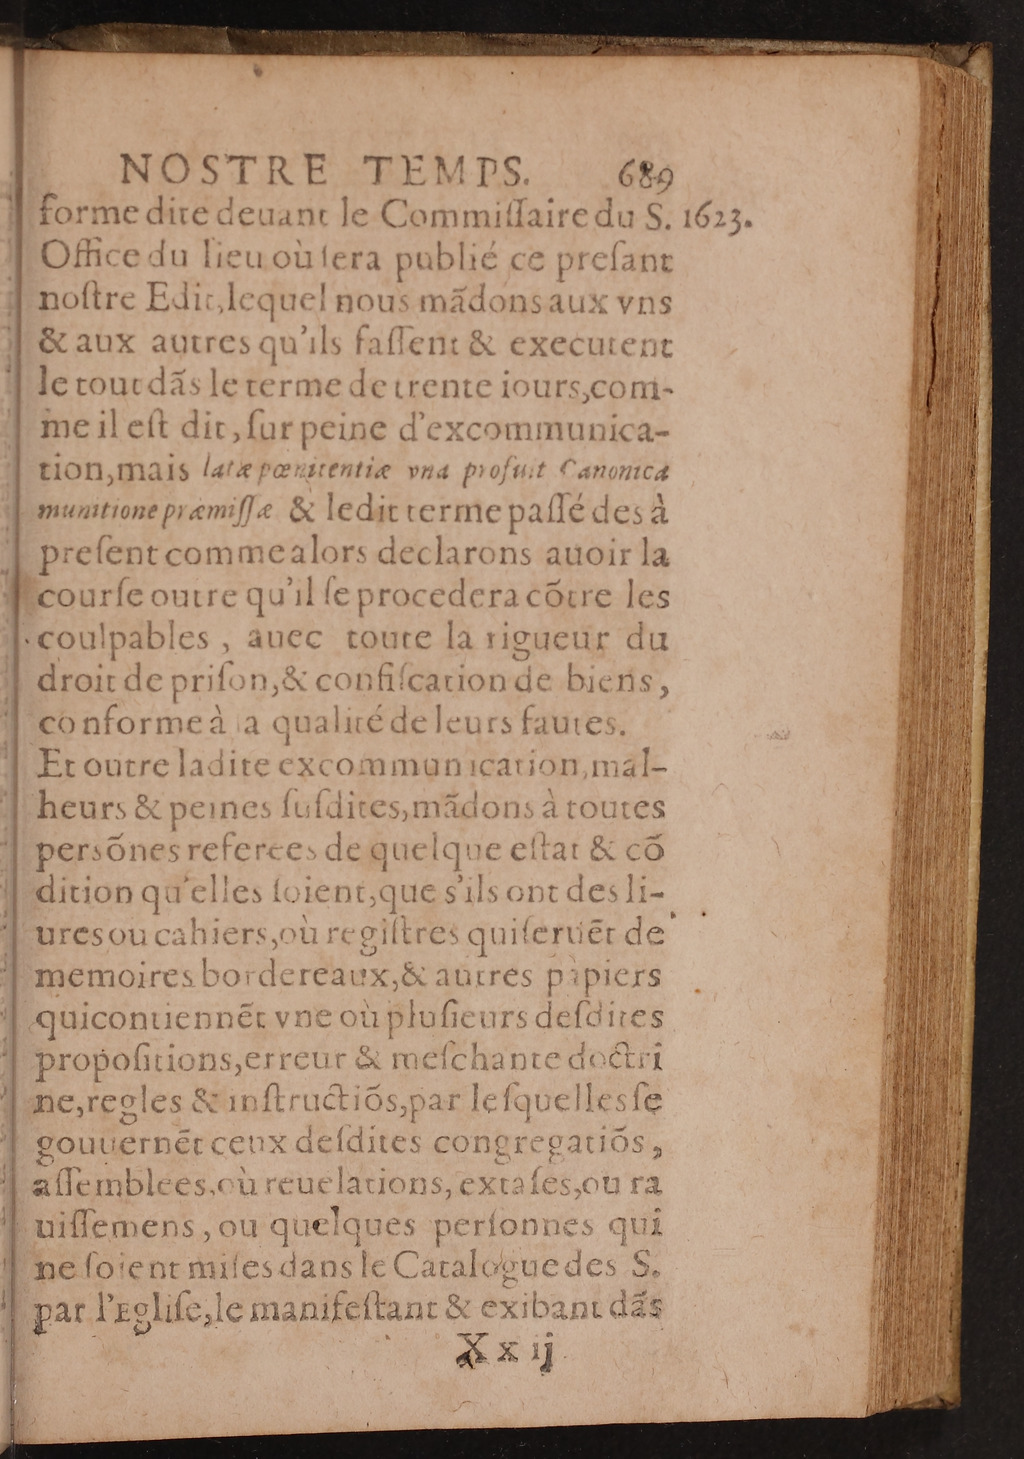 NOSTRE TEMPS. 689
forme dite deuant le Commiſſaire du S. 1623.
Office du lieu où ſera publié ce preſant
noſtre Edit, lequel nous mãdons aux vns
& aux autres qu'ils faſſent & executent
le tout dãs le terme de trente iours, com-
me il eſt dit, ſur peine d'excommunica-
tion, mais latæ pœnitentiæ vna profuit Canonica
munitione præmiſſæ & ledit terme paſſé des à
preſent comme alors declarons auoir la
courſe outre qu'il ſe procedera cõtre les
coulpables, auec toute la rigueur du
droit de priſon, & confiſcation de biens,
conforme à la qualité de leurs fautes.
Et outre ladite excommunication, mal-
heurs & peines ſuſdites, mãdons à toutes
persõnes referees de quelque eſtat & cõ
dition qu'elles ſoient, que s'ils ont des li-
ures ou cahiers, où regiſtres qui ſeruẽt de
memoires bordereaux, & autres papiers
qui contiennẽt vne où pluſieurs deſdites
propoſitions, erreur & meſchante doctri
ne, regles & inſtructiõs, par leſquelles ſe
gouuernẽt ceux deſdites congregatiõs,
aſſemblees, où reuelations, extaſes, ou ra
uiſſemens, ou quelques perſonnes qui
ne ſoient miſes dans le Catalogue des S.
par l'Egliſe, le manifeſtant & exibant dãs
Xx ij